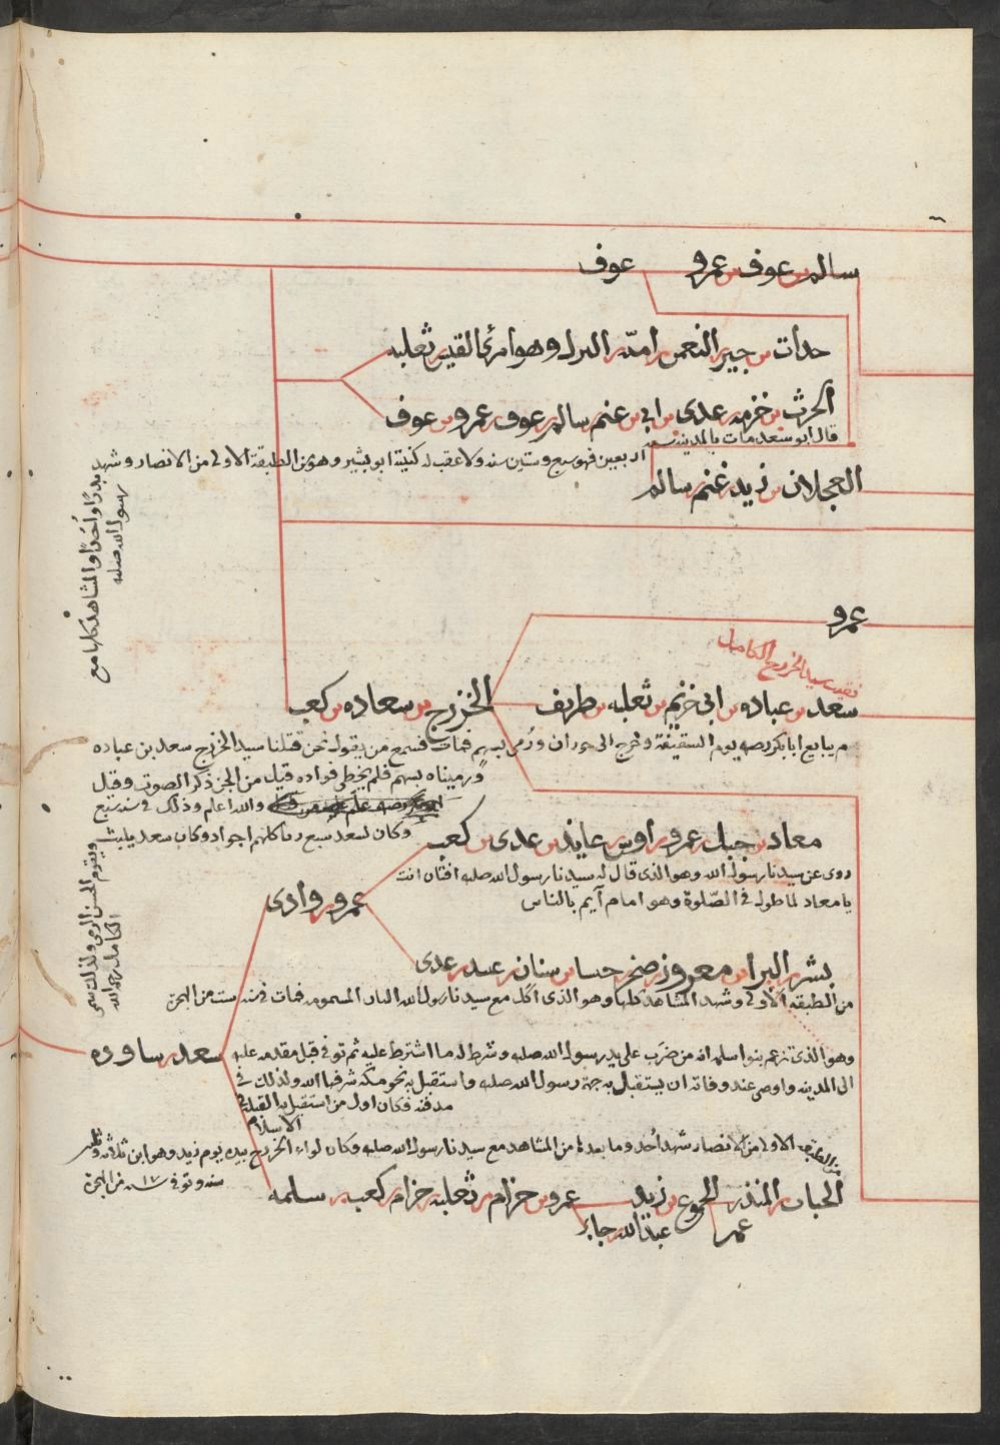 سالم بن عوف بن عمرو عوف
حداث بن جبير النعمن امته البرك وهو امرئ القيس ثعلبه
الحرث بن خزمه عدى بن ابى بن غنم سالم عوف عمرو بن عوف
قال ابو سعد مات بالمدينه سنه
اربعين فهو سبع وستين سنه ولا عقب له كنيته ابو بشير وهو من الطبقة الاولى من الانصار وشهد
بدرًا وأحُدًا والمشاهد كلها مع
رسول الله صلعه
العجلان بن زيد غنم سالم
عمرو
نقيب سيد الخزرج الكامل
سعد بن عباده بن ابى خزيم بن ثعلبه بن طريف الخزرج بن سعاده بن كعب
لم يبايع ابا بكر رضه يوم السقيفة وخرج الى حوران ورُمى بسهم فمات فسمع من يقول نحن قتلنا سيد الخزرج سعد بن عباده
ورميناه بسهم فلم يخطى فواده قيل من الجن ذكر الصوت وقيل
والله اعلم وذلك فى سنه سبع
وكان لسعد سبع كلهم اجواد وكان سعد
ويقوم الحسن الرمى ولذلك سمى
الكامل رحمه الله
معاد بن جبل عمرو اوس عايذ بن عدى بن كعب
روى عن سيدنا رسول الله وهو الذى قال له سيدنا رسول الله صلعه افتان انت
يا معاد لما طوله فى الصّلوة وهو امام آيم بالناس
عمرو وادى
بشر البرا بن معرور صخر حسا بن سنان عبيد عدى
من الطبقه الاولى وشهد المشاهد كلها وهو الذى اكل مع سيدنا رسول الله الشاه المسمومه فمات فى سنه ست من الهجرة
سعد ساوده
وهو الذى تزعم بنو اسلمه انه من ضرب على يد رسول الله صلعه وشرط له ما اشترط عليه ثم توفى قبل مقدمه عليه
الى المدينه واوصى عند وفاته ان يستقبل به جهة رسول الله صلعه واستقبل به نحو مكه شرفها الله ولذلك فى
مدفنه فكان اول من استقبل به القبلة فى
الاسلام
من الطبقه الاولى من الانصار شهد أحُد وما بعدها من المشاهد مع سيدنا رسول الله صلعه وكان لواء الخزرج بيده يوم وهو ابن ثلاثه وثلثين
سنه وتوفى سنه ١٧ من الهجرة
الحباب المنذر الجموح بن زيد عمرو بن حزام ثعلبه حزام كعب سلمه
عمر عبد الله جابر